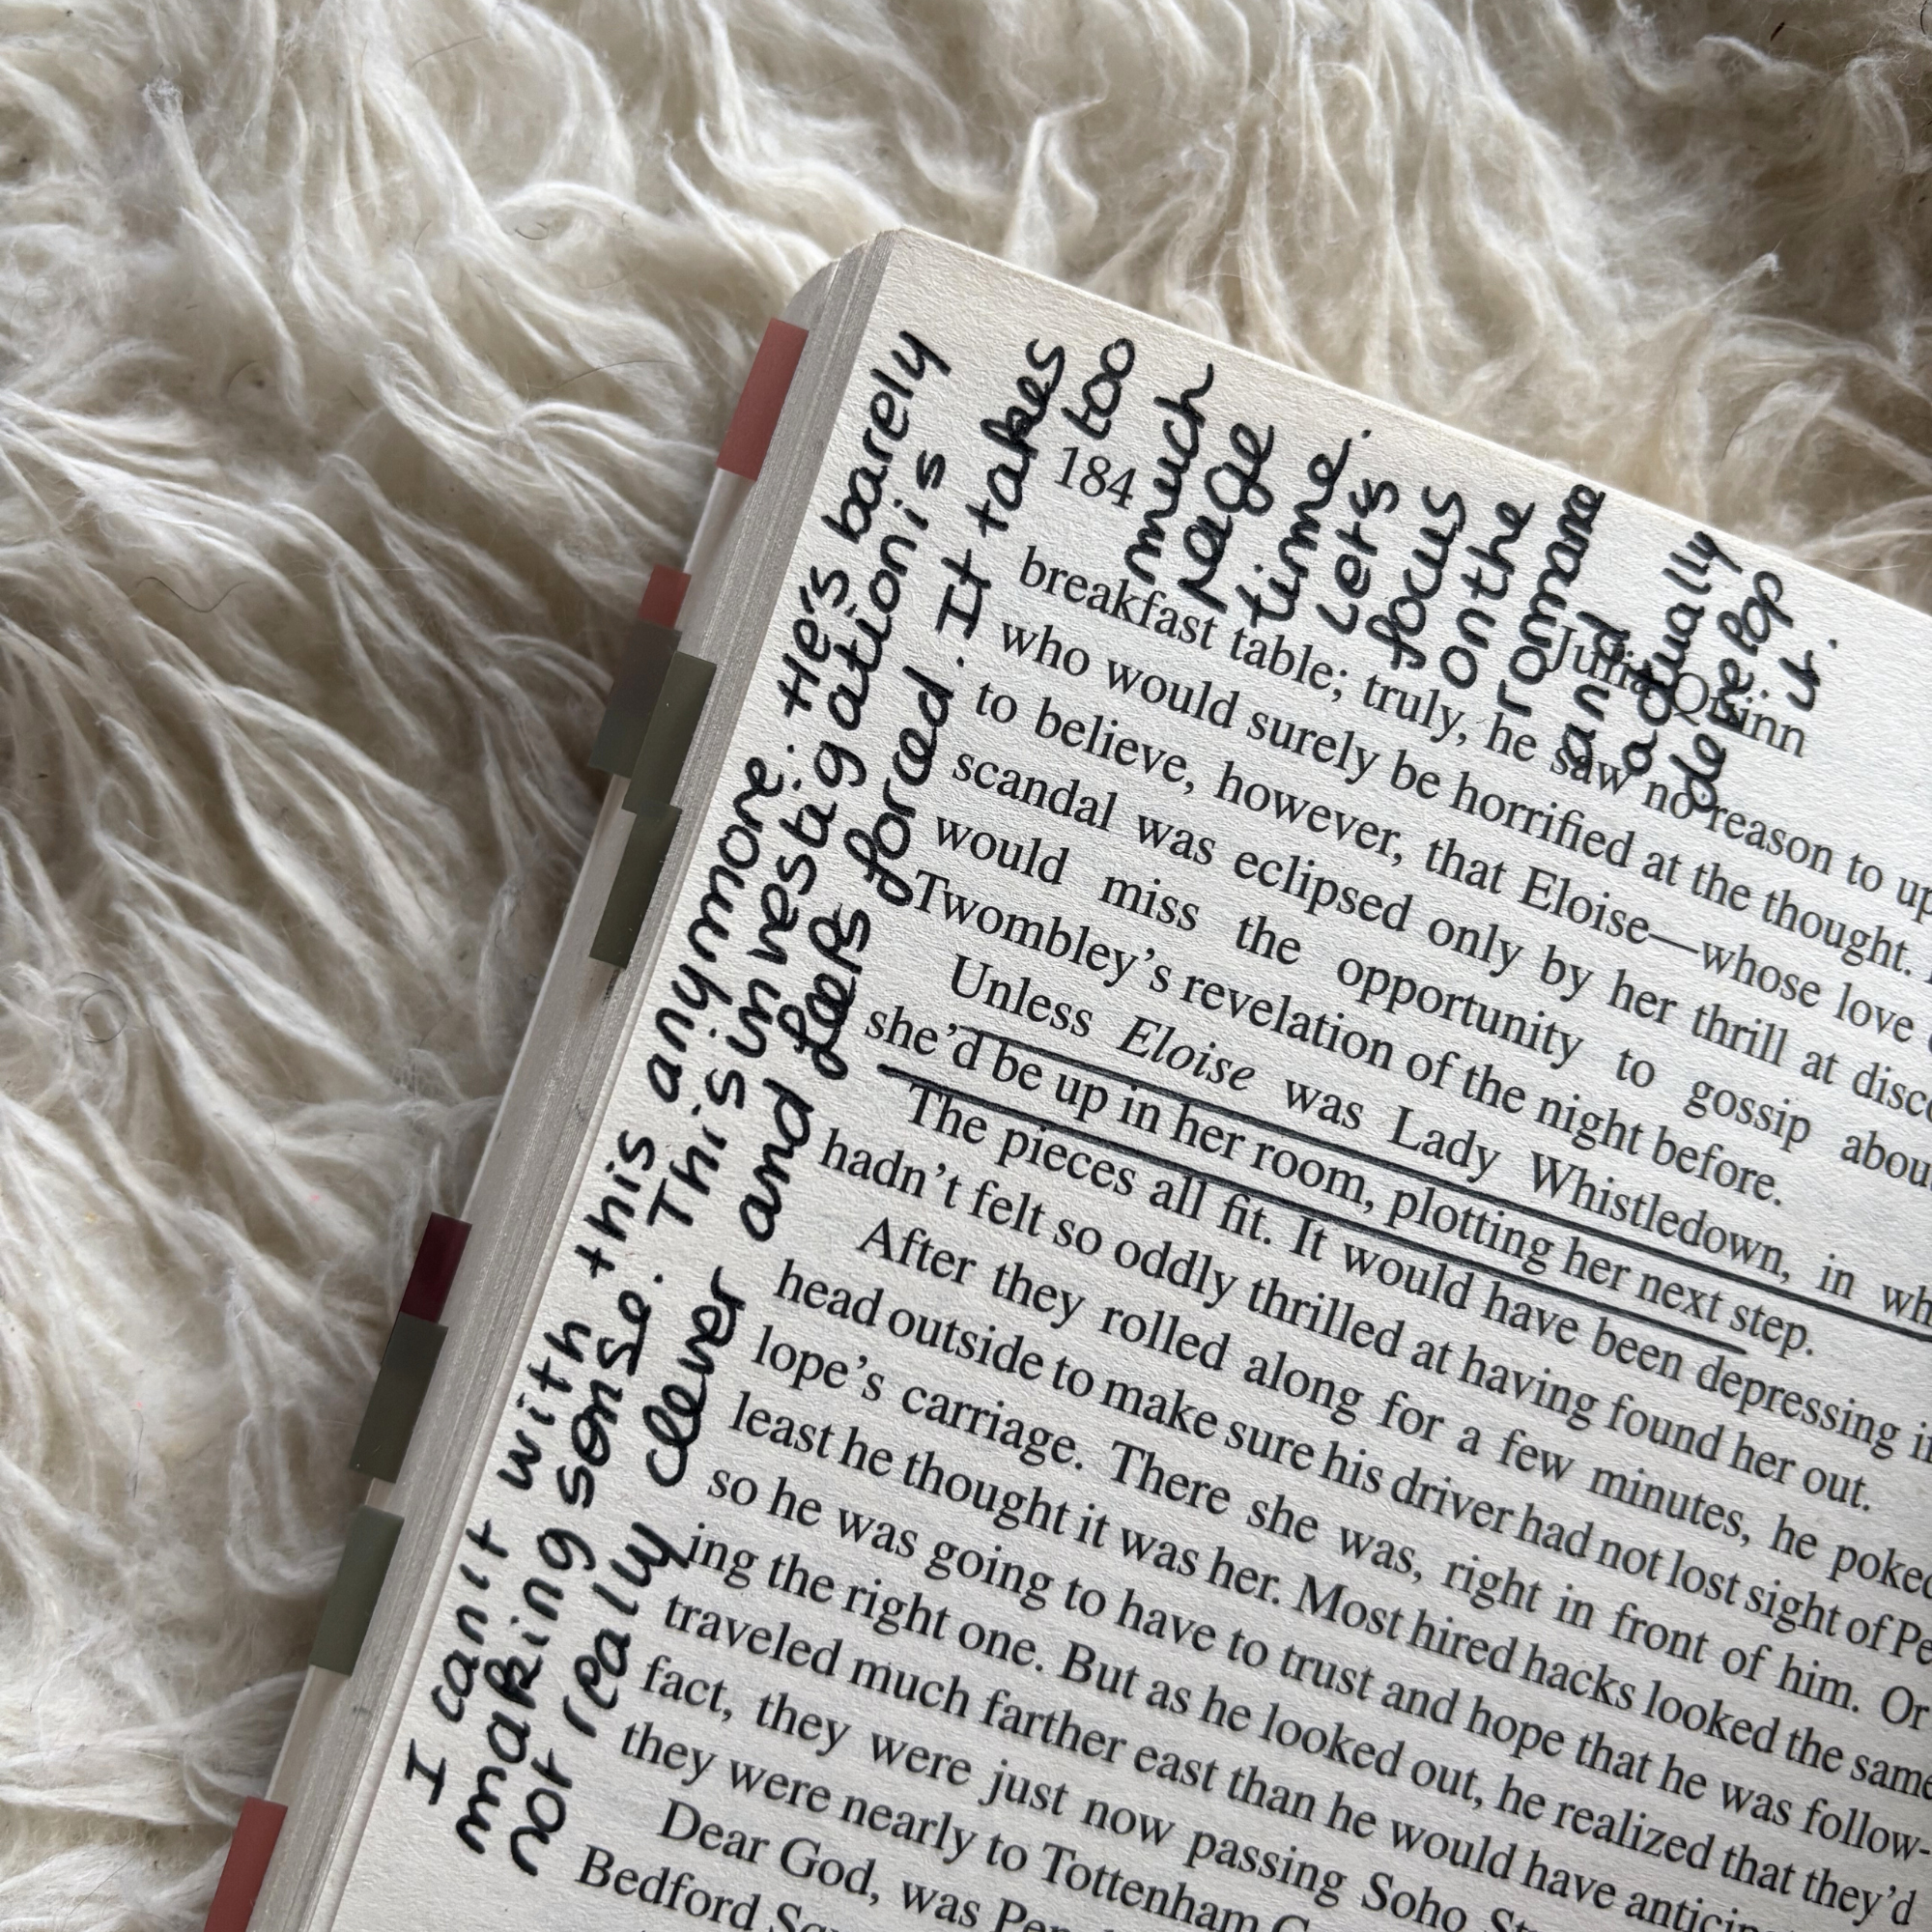 I can't with this anymore. He's barely
making sense. This investigation is
not really clever and feels forced. It takes
too
much
page
time.
Lets
focus
on the
romance
and
actually
develop
it.
184
Julia Quinn
breakfast table; truly, he saw no reason to up
who would surely be horrified at the thought.
to believe, however, that Eloise—whose love
scandal was eclipsed only by her thrill at disc
would miss the opportunity to gossip abou
Twombley's revelation of the night before.
Unless Eloise was Lady Whistledown, in wh
she'd be up in her room, plotting her next step.
The pieces all fit. It would have been depressing i
hadn't felt so oddly thrilled at having found her out.
After they rolled along for a few minutes, he poked
head outside to make sure his driver had not lost sight of Pe
lope's carriage. There she was, right in front of him. Or
least he thought it was her. Most hired hacks looked the same
so he was going to have to trust and hope that he was follow-
ing the right one. But as he looked out, he realized that they'd
traveled much farther east than he would have antici
fact, they were just now passing Soho St
they were nearly to Tottenham C
Dear God, was Pen
Bedford Squ